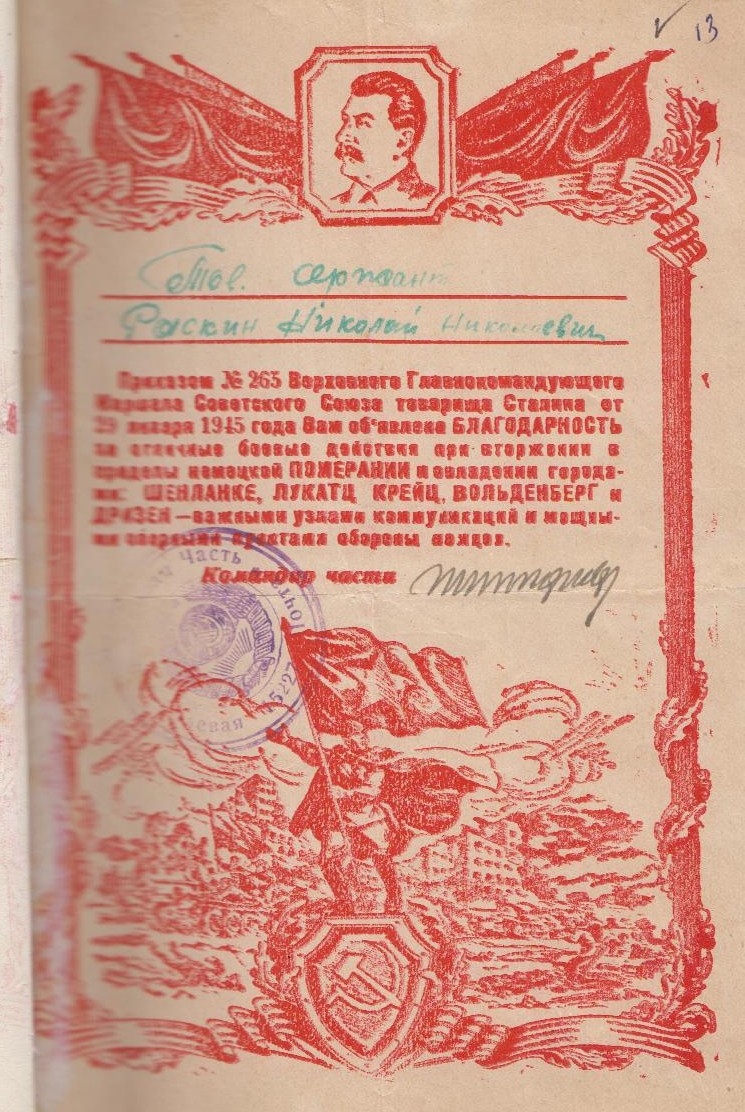 13
Тов. сержант
Раскин Николай Николаевич
Приказом № 265 Верховного Главнокомандующего
Маршала Советского Союза товарища Сталина от
29 января 1945 года Вам об'явлена БЛАГОДАРНОСТЬ
за отличные боевые действия при вторжении в
пределы немецкой ПОМЕРАНИИ и овладении города-
ми: ШЕНЛАНКЕ, ЛУКАТЦ КРЕЙЦ, ВОЛЬДЕНБЕРГ и
ДРИЗЕН — важными узлами коммуникаций и мощны-
ми опорными пунктами обороны немцев.
Командир части
часть